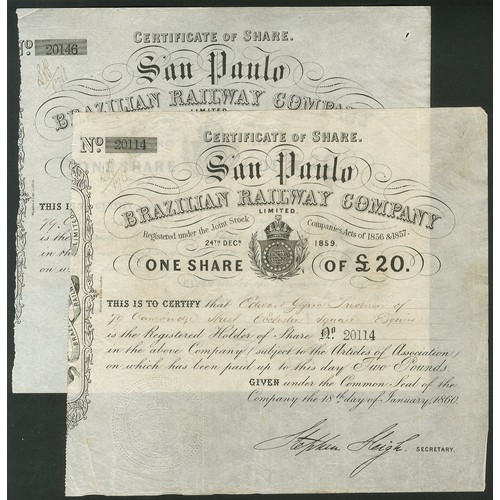 CERTIFICATE OF SHARE.
No 20146
San Paulo
BRAZILIAN RAILWAY COMPANY
LIMITED
ONE SHARE
THIS IS
is the
on w
CERTIFICATE OF SHARE.
No 20114
San Paulo
BRAZILIAN RAILWAY COMPANY
LIMITED.
Registered under the Joint Stock Companies Acts of 1856 & 1857.
24TH DECR. 1859.
ONE SHARE OF £20.
THIS IS TO CERTIFY that Edward of
79 Street Square
is the Registered Holder of Share No 20114
in the above Company (subject to the Articles of Association)
on which has been paid up to this day Two Pounds
GIVEN under the Common Seal of the
Company the 18th day of January, 1860.
Stephen Sleigh. SECRETARY.